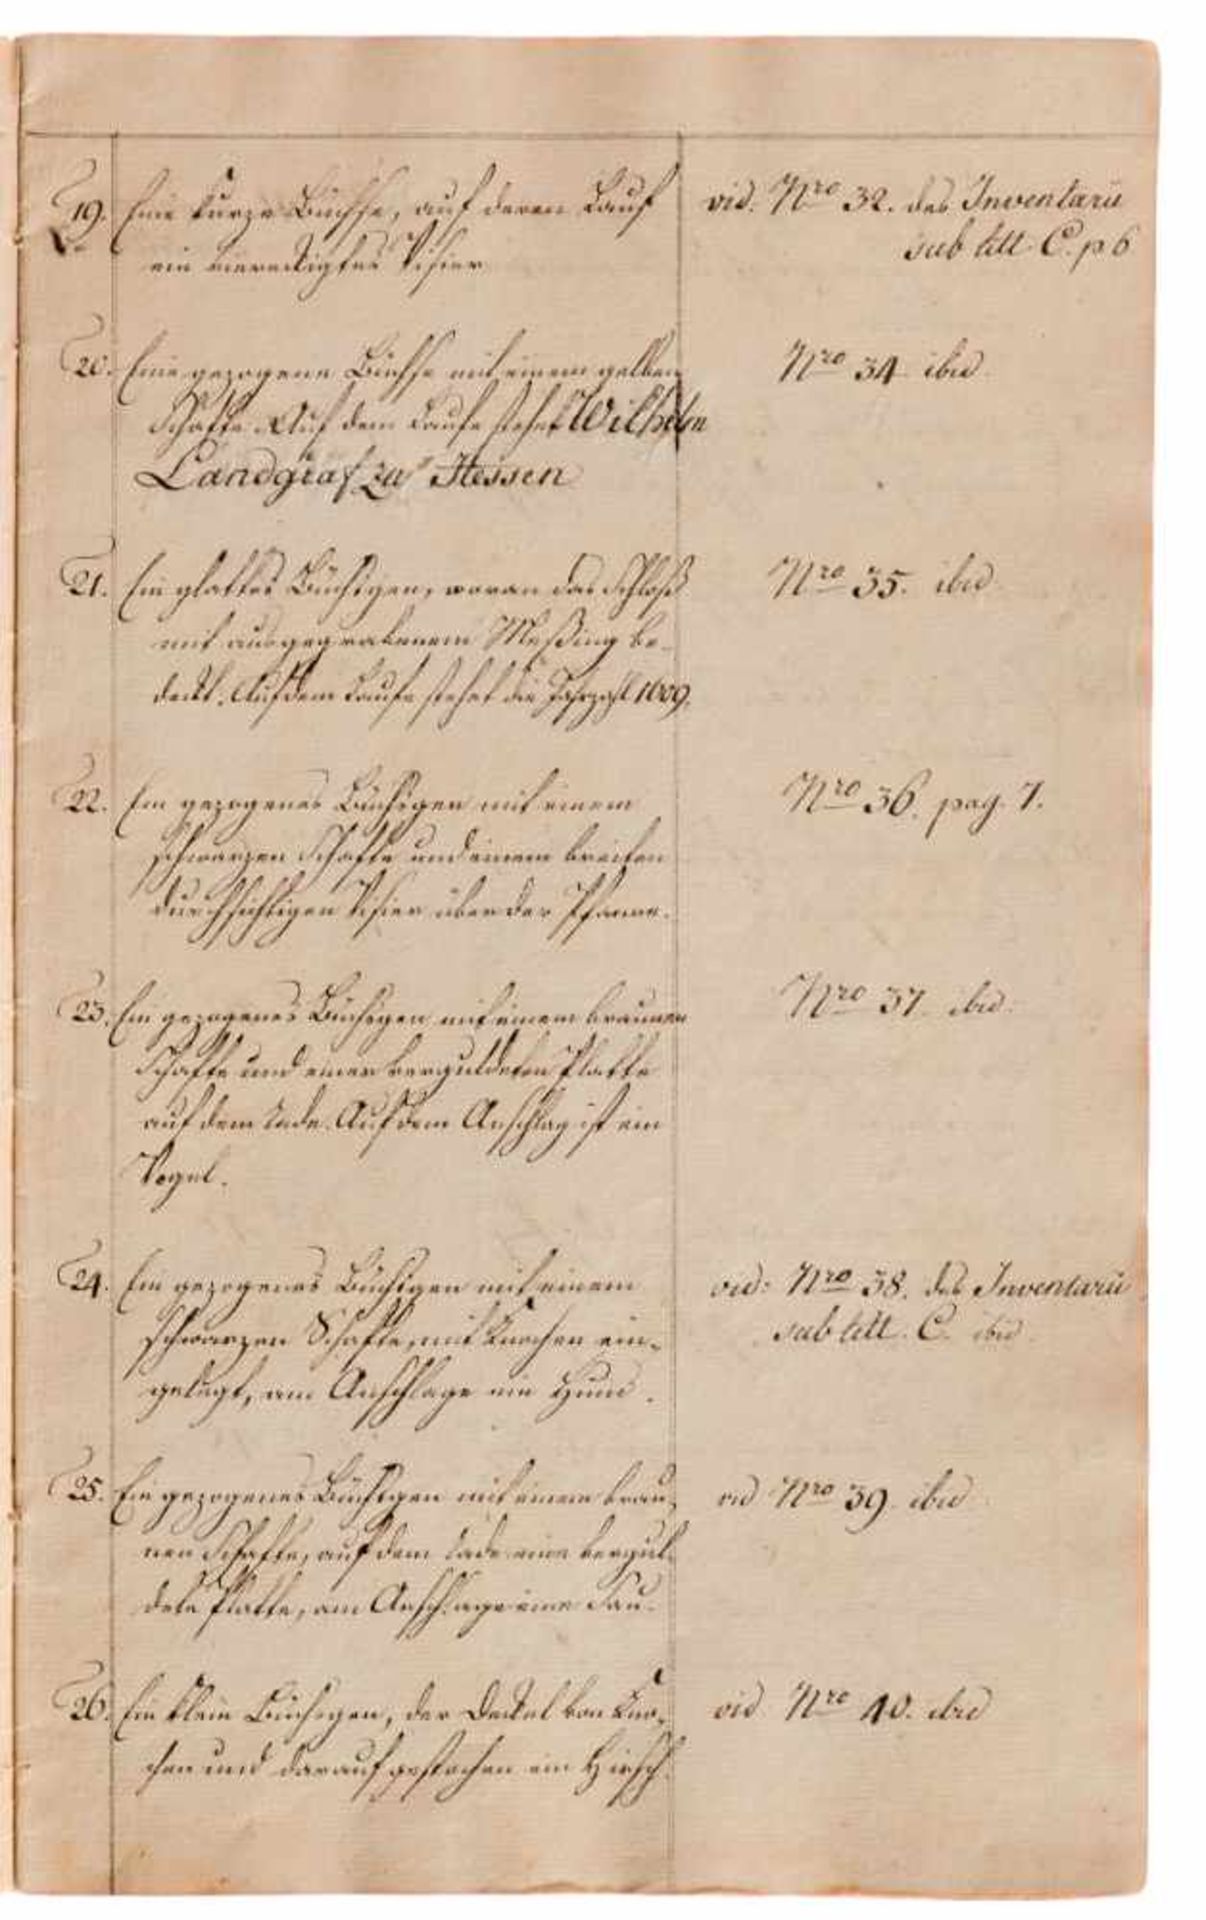 19. Eine kurze Büchse, auf deren Lauf vid. Nro 32. des Inventarii
ein viereckigtes Visier sub litt. C. p 6
20. Eine gezogene Büchse mit einem gelben Nro 34 ibid.
Schafte. Auf dem Laufe stehet Wilhelm
Landgraf zu Hessen
21. Ein glattes Büchsgen, woran das Schloß Nro 35. ibid
mit ausgegrabenem Meßing be-
deckt. Auf dem Laufe stehet die Jahrzahl 1609.
22. Ein gezogenes Büchsgen mit einem Nro 36. pag. 7.
schwarzen Schafte und einem breiten
durchsichtigen Visier über der Pfanne.
23. Ein gezogenes Büchsgen mit einem braunen Nro 37 ibid.
Schafte und einer verguldeten Platte
auf dem Lade. Auf dem Anschlag ist ein
Vogel.
24. Ein gezogenes Büchsgen mit einem vid: Nro 38. des Inventarii
schwarzen Schafte, mit Knochen ein- sub litt. C. ibid
gelegt, am Anschlage ein Hund.
25. Ein gezogenes Büchsgen mit einem brau- vid Nro 39 ibid
nen Schafte, auf dem Lade eine vergul-
dete Platte, am Anschlage eine Sau.
26. Ein klein Büchsgen, der Deckel von Kno- vid Nro 40. ibid
chen und darauf gestochen ein Hirsch.